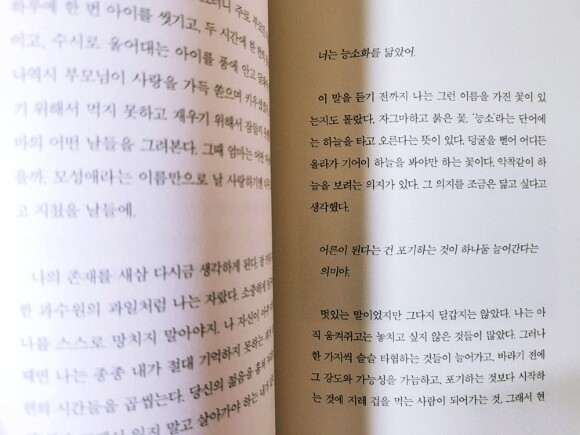 하루에 한 번 아이를 씻기고, 두 시간에 한 번씩
이고, 수시로 울어대는 아이를 품에 안고
나역시 부모님이 사랑을 가득 쏟으며
기 위해서 먹지 못하고 재우기 위해서 잠들지
마의 어떤 날들을 그려본다. 그때 엄마는 어떤
을까. 모성애라는 이름만으로 날 사랑하기엔
고 지쳤을 날들에.
나의 존재를 새삼 다시금 생각하게 된다. 잘
한 과수원의 과일처럼 나는 자랐다. 소중하게
나를 스스로 망치지 말아야지. 나 자신이 아주
때면 나는 종종 내가 절대 기억하지 못하는
현의 시간들을 곱씹는다. 당신의 젊음을
잊지 말고 살아가야 하는
너는 능소화를 닮았어.
이 말을 듣기 전까지 나는 그런 이름을 가진 꽃이 있
는지도 몰랐다. 자그마하고 붉은 꽃. '능소'라는 단어에
는 하늘을 타고 오른다는 뜻이 있다. 덩굴을 뻗어 어디든
올라가 기어이 하늘을 봐야만 하는 꽃이다. 악착같이 하
늘을 보려는 의지가 있다. 그 의지를 조금은 닮고 싶다고
생각했다.
어른이 된다는 건 포기하는 것이 하나둘 늘어간다는
의미야.
멋있는 말이었지만 그다지 달갑지는 않았다. 나는 아
직 움켜쥐고는 놓치고 싶지 않은 것들이 많았다. 그러나
한 가지씩 슬슬 타협하는 것들이 늘어가고, 바라기 전에
그 강도와 가능성을 가늠하고, 포기하는 것보다 시작하
는 것에 지레 겁을 먹는 사람이 되어가는 것. 그래서 현